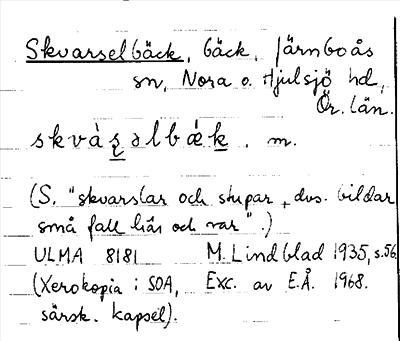 Skvarselbäck, bäck, Järnboås
sn, Nora o. Hjulsjö hd,
Ör. län.
skvàʂəlbǽk. m.
(S. "skvarslar och stupar, dvs. bildar
små fall här och var".)
ULMA 8181 M. Lindblad 1935, s.56.
(Xerokopia i SOA, Exc. av E.Å. 1968.
särsk. kapsel).